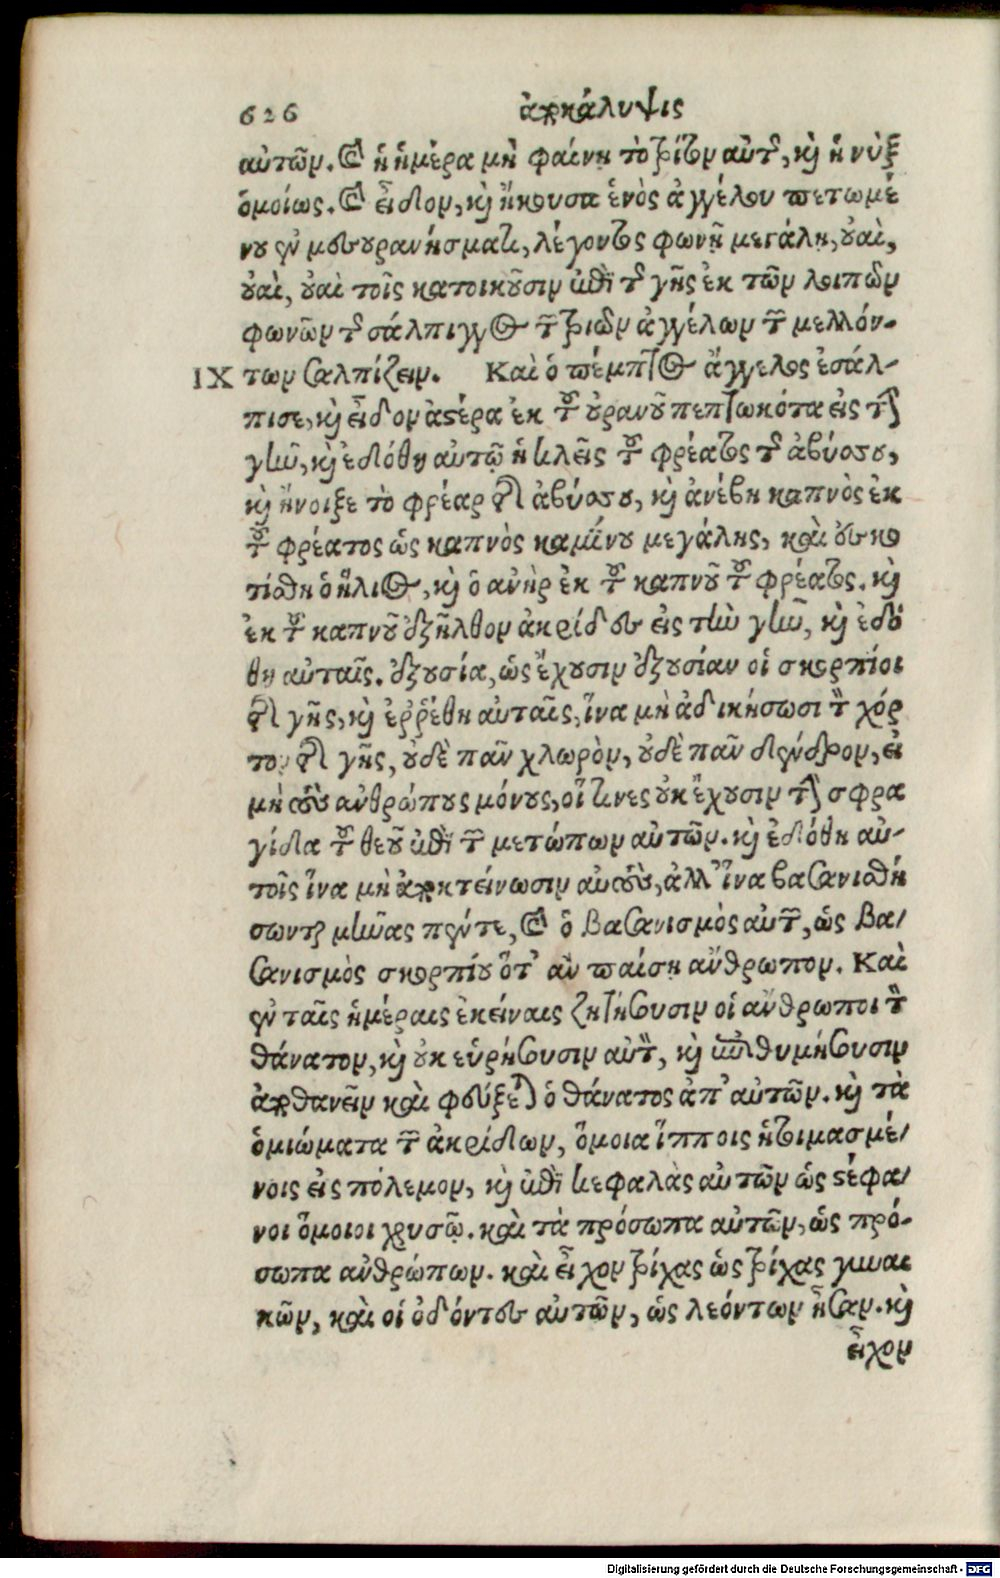 626 ἀποκάλυψις
αὐτῶν. καὶ ἡ ἡμέρα μὴ φαίνῃ τὸ τρίτον αὐτῆς, καὶ ἡ νὺξ
ὁμοίως. καὶ εἶδον, καὶ ἤκουσα ἑνὸς ἀγγέλου πετωμέ
νου ἐν μεσουρανήσματι, λέγοντος φωνῇ μεγάλῃ, οὐαὶ,
οὐαὶ, οὐαὶ τοῖς κατοικοῦσιν ἐπὶ τῆς γῆς ἐκ τῶν λοιπῶν
φωνῶν τῆς σάλπιγγος τῶν τριῶν ἀγγέλων τῶν μελλόν-
IX των σαλπίζειν. Καὶ ὁ πέμπτος ἄγγελος ἐσάλ-
πισε, καὶ εἶδον ἀστέρα ἐκ τοῦ οὐρανοῦ πεπτωκότα εἰς τὴν
γῆν, καὶ ἐδόθη αὐτῷ ἡ κλεῖς τοῦ φρέατος τῆς ἀβύσσου,
καὶ ἤνοιξε τὸ φρέαρ τῆς ἀβύσσου, καὶ ἀνέβη καπνὸς ἐκ
τοῦ φρέατος ὡς καπνὸς καμίνου μεγάλης, καὶ ἐσκο
τίσθη ὁ ἥλιος, καὶ ὁ ἀὴρ ἐκ τοῦ καπνοῦ τοῦ φρέατος. καὶ
ἐκ τοῦ καπνοῦ ἐξῆλθον ἀκρίδες εἰς τὴν γῆν, καὶ ἐδό
θη αὐταῖς. ἐξουσία, ὡς ἔχουσιν ἐξουσίαν οἱ σκορπίοι
τῆς γῆς, καὶ ἐρῤῥέθη αὐταῖς, ἵνα μὴ ἀδικήσωσι τὸν χόρ
τον τῆς γῆς, οὐδὲ πᾶν χλωρὸν, οὐδὲ πᾶν δένδρον, εἰ
μὴ τοὺς ἀνθρώπους μόνους, οἵτινες οὐκ ἔχουσιν τὴν σφρα
γίδα τοῦ θεοῦ ἐπὶ τῶν μετώπων αὐτῶν. καὶ ἐδόθη αὐ-
τοῖς ἵνα μὴ ἀποκτείνωσιν αὐτοὺς, ἀλλ’ ἵνα βασανισθή
σωνται μῆνας πέντε, καὶ ὁ βασανισμὸς αὐτῶν, ὡς βα/
σανισμὸς σκορπίου ὅταν παίσῃ ἄνθρωπον. Καὶ
ἐν ταῖς ἡμέραις ἐκείναις ζητήσουσιν οἱ ἄνθρωποι τὸν
θάνατον, καὶ οὐκ εὑρήσουσιν αὐτὸν, καὶ ἐπιθυμήσουσιν
ἀποθανεῖν καὶ φεύξεται ὁ θάνατος ἀπ’ αὐτῶν. καὶ τὰ
ὁμιώματα τῶν ἀκρίδων, ὅμοια ἵπποις ἡτοιμασμέ/
νοις εἰς πόλεμον, καὶ ἐπὶ κεφαλὰς αὐτῶν ὡς στέφα/
νοι ὅμοιοι χρυσῷ. καὶ τὰ πρόσωπα αὐτῶν, ὡς πρό-
σωπα ἀνθρώπων. καὶ εἶχον τρίχας ὡς τρίχας γυναι
κῶν, καὶ οἱ ὀδόντες αὐτῶν, ὡς λεόντων ἦσαν. καὶ
εἶχον
Digitalisierung gefördert durch die Deutsche Forschungsgemeinschaft - DFG